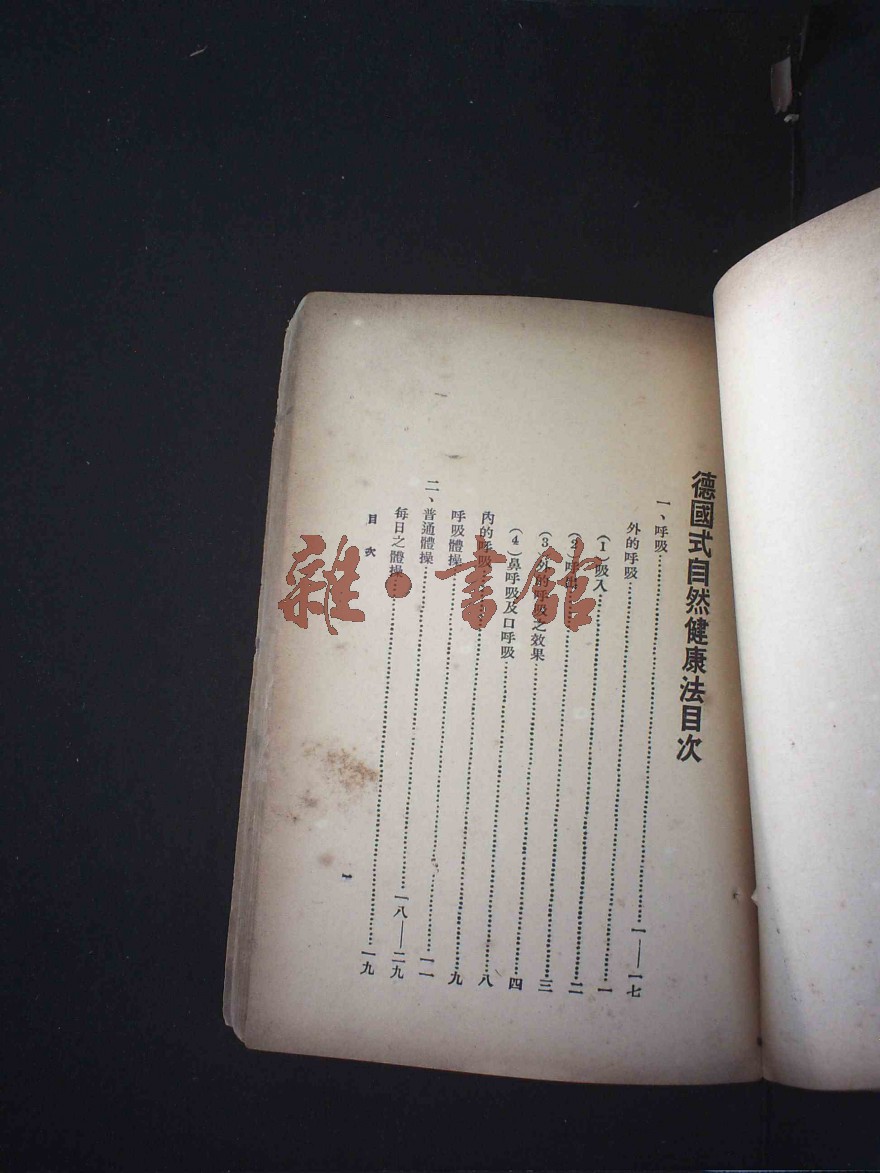 德國式自然健康法目次
一、呼吸……一——一七
外的呼吸……一
(1)吸入……二
(2)呼出……三
(3)外的呼吸之效果……四
(4)鼻呼吸及口呼吸……八
內的呼吸……九
呼吸體操……一一
二、普通體操……一八——二九
每日之體操……一九
目次 一
雜·書館